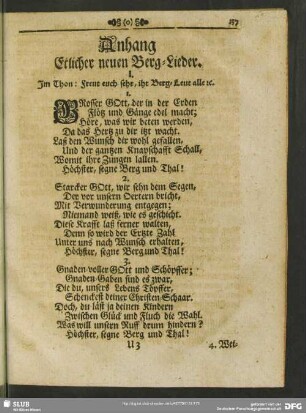 (o)
157
Anhang
Etlicher neuen Berg-Lieder.
I.
Im Thon: Freut euch sehr, ihr Berg-Leut alle ꝛc.
1.
GRosser GOtt, der in der Erden
Flötz und Gänge edel macht;
Höre, was wir beten werden,
Da das Hertz zu dir itzt wacht.
Laß den Wunsch dir wohl gefallen,
Und der gantzen Knapschafft Schall,
Womit ihre Zungen lallen.
Höchster, segne Berg und Thal!
2.
Starcker GOtt, wir sehn dem Segen,
Der vor unsern Oertern bricht,
Mit Verwunderung entgegen;
Niemand weiß, wie es geschicht.
Diese Krafft laß ferner walten,
Denn so wird der Ertzte Zahl
Unter uns nach Wunsch erhalten,
Höchster, segne Berg und Thal!
3.
Gnaden-voller GOtt und Schöpffer;
Gnaden-Gaben sind es zwar,
Die du, unsers Lebens Töpffer,
Schenckest deiner Christen-Schaar.
Doch, du läst ja deinen Kindern
Zwischen Glück und Fluch die Wahl.
Was will unsern Ruff drum hindern?
Höchster, segne Berg und Thal!
U 3
4. Wei-
SLUB
Wir führen Wissen.
gefördert von der
DFG
Deutschen Forschungsgemeinschaft